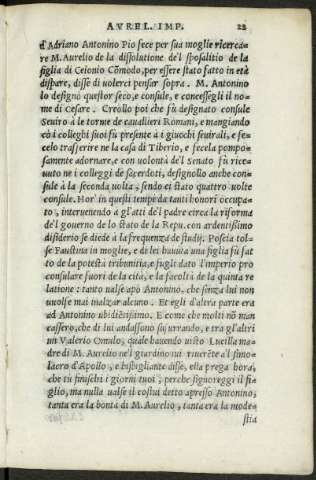 AVREL. IMP. 22
d'Adriano Antonino Pio fece per sua moglie ricerca-
re M. Aurelio de la dissolutione de'l sposalitio de la
figlia di Ceionio Cōmodo, per essere stato fatto in età
dispare, disse di uolerci pensar sopra. M. Antonino
lo designò questor seco, e consule, e concessegli il no-
me di Cesare. Creollo poi che fù designato consule
Seuiro à le torme de caualieri Romani, e mangiando
cò i colleghi suoi fù presente à i giuochi seuirali, e fe-
celo trasferire ne la casa di Tiberio, e fecela pompo-
samente adornare, e con uolontà de'l Senato fù rice-
uuto ne i colleggi de sacerdoti, designollo anche con-
sule à la seconda uolta, sendo ei stato quattro uolte
consule. Hor' in questi tempi da tanti honori occupa-
to, interuenendo a gl'atti de'l padre circa la riforma
de'l gouerno de lo stato de la Repu. con ardentissimo
disiderio se diede à la frequenza de studij. Poscia tol-
se Faustina in moglie, e di lei hauuta una figlia fù fat
to de la potestà tribunitia, e fugli dato l'imperio pro
consulare fuori de la città, e la facoltà de la quinta re
latione: tanto ualse apò Antonino, che senza lui non
uuolse mai inalzar alcuno. Et egli d'altra parte era
ad Antonino ubidiẽtissimo. E come che molti nō man
cassero, che di lui andassono susurrando, e tra gl'altri
un Valerio Omulo, quale hauendo uisto Lucilla ma-
dre di M. Aurelio ne'l giardino sui riuerẽte a'l simo-
lacro d'Apollo, e bisbigliante disse, ella prega hora,
che tù finischi i giorni tuoi, perche signoreggi il fi-
glio, ma nulla ualse il costui detto apresso Antonino,
tanta era la bontà di M. Aurelio, tanta era la mode-
stia